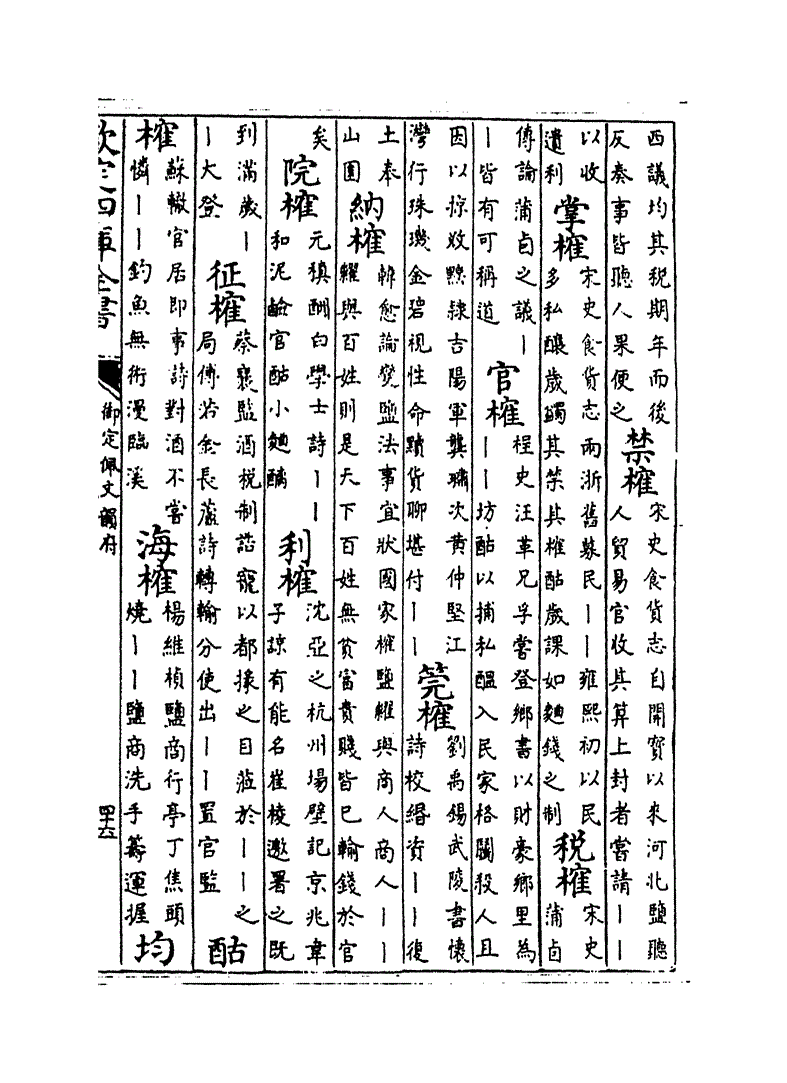 西議均其税期年而後
反奏事皆聽人果便之
禁榷
宋史食貨志自開寶以來河北鹽聽
人貿易官收其算上封者嘗請｜｜
以收
遺利
掌榷
宋史食貨志兩浙舊募民｜｜雍熙初以民
多私釀歲蠲其禁其榷酤歲課如麴錢之制
税榷
宋史
蒲卣
傳論蒲卣之議｜
｜皆有可稱道
官榷
桯史汪革兄孚嘗登鄉書以財豪鄉里為
｜｜坊酤以捕私醖入民家格鬭殺人且
因以掠敚黥隸吉陽軍龔璛次黄仲堅江
灣行珠璣金碧視性命黷貨聊堪付｜｜
筦榷
劉禹錫武陵書懷
詩校緡資｜｜復
土奉
山園
納榷
韓愈論變鹽法事宜狀國家榷鹽糶與商人商人｜｜
糶與百姓則是天下百姓無貧富貴賤皆已輸錢於官
矣
院榷
元稹酬白學士詩｜｜
和泥鹼官酤小麴醨
利榷
沈亞之杭州場壁記京兆韋
子諒有能名崔稜邀署之既
到滿歲｜
｜大登
征榷
蔡襄監酒税制誥寵以都掾之目蒞於｜｜之
局傅若金長蘆詩轉輸分使出｜｜置官監
酤
榷
蘇轍官居即事詩對酒不嘗
憐｜｜釣魚無術漫臨溪
海榷
楊維楨鹽商行亭丁焦頭
燒｜｜鹽商洗手籌運握
均
欽定四庫全書
御定佩文韻府
四十六